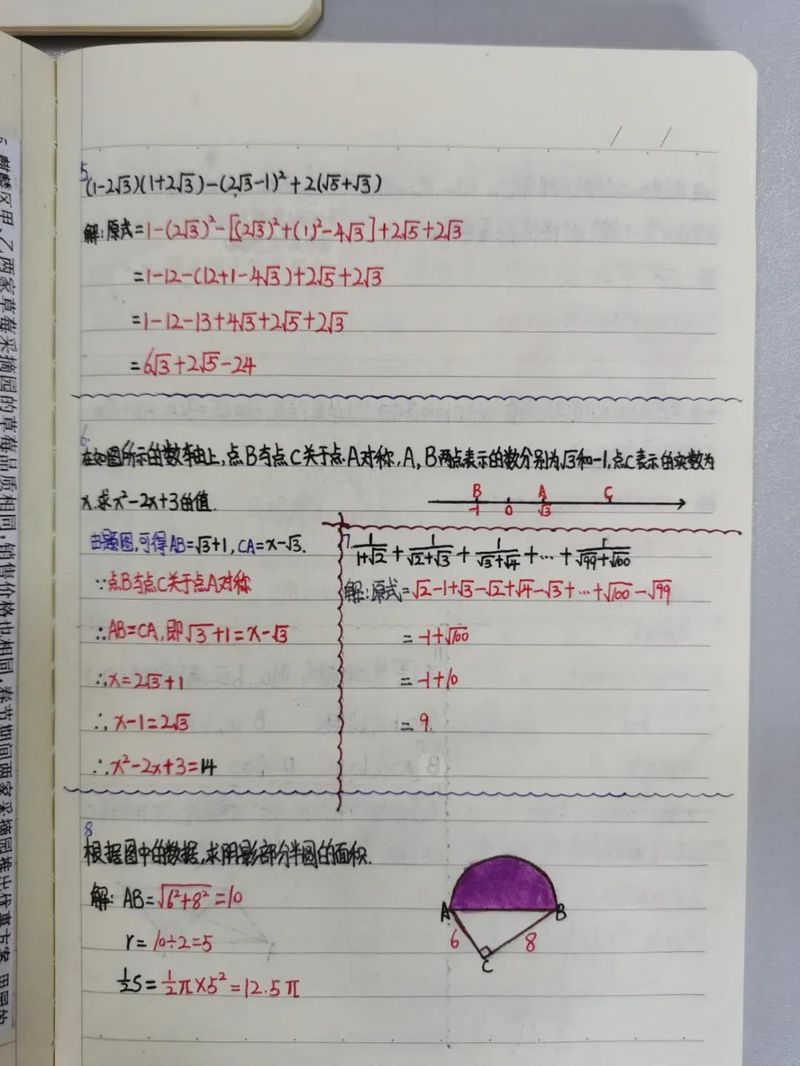 5
(1-2√3)(1+2√3)-(2√3-1)²+2(√5+√3)
解:原式=1-(2√3)²-[(2√3)²+(1)²-4√3]+2√5+2√3
=1-12-(12+1-4√3)+2√5+2√3
=1-12-13+4√3+2√5+2√3
=6√3+2√5-24
6
在如图所示的数轴上,点B与点C关于点A对称,A,B两点表示的数分别为√3和-1,点C表示的实数为
x.求x²-2x+3的值.
B A C
-1 0 √3
由题图,可得AB=√3+1,CA=x-√3.
∵点B与点C关于点A对称
∴AB=CA,即√3+1=x-√3
∴x=2√3+1
∴x-1=2√3
∴x²-2x+3=14
7 1/(1+√2)+1/(√2+√3)+1/(√3+√4)+…+1/(√99+√100)
解:原式=√2-1+√3-√2+√4-√3+…+√100-√99
=-1+√100
=-1+10
=9.
8
根据图中的数据,求阴影部分半圆的面积.
解: AB=√(6²+8²)=10
r=10÷2=5
½S=½π×5²=12.5π
A B
6 8
C
麒麟区甲、乙两家草莓采摘园的草莓品质相同,销售价格也相同,春节期间两家采摘园推出优惠方案,甲园的